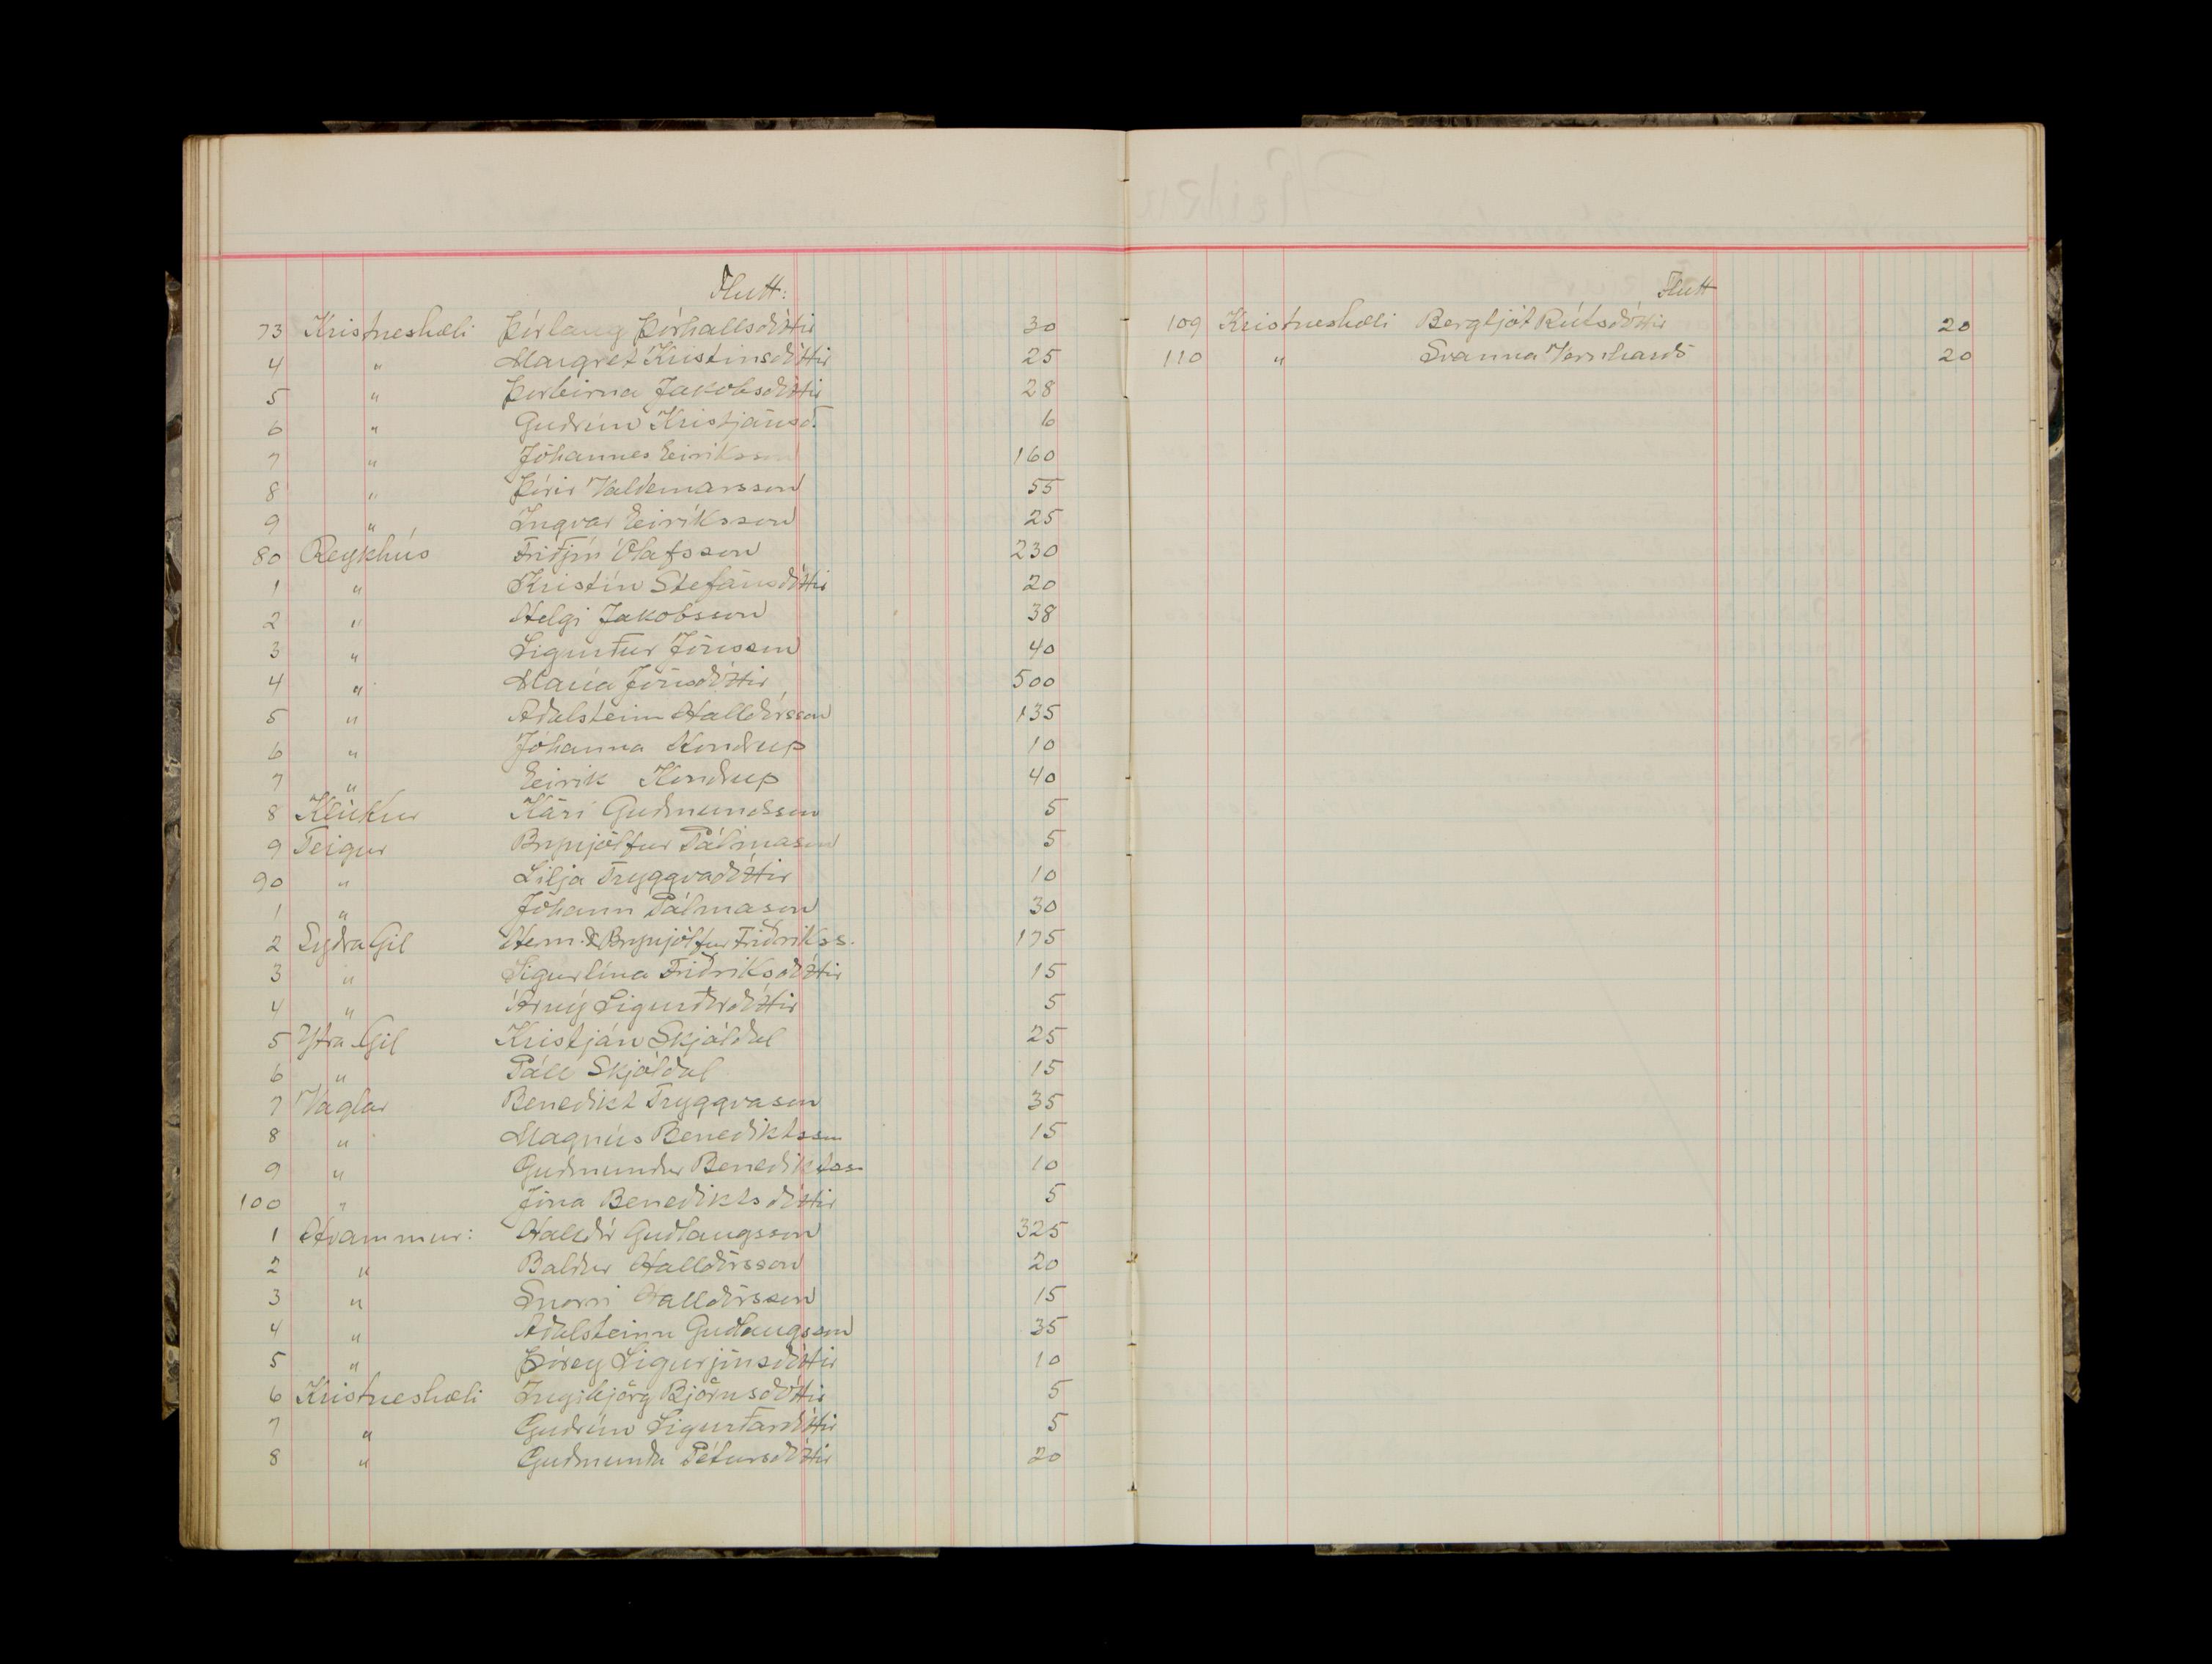 Flutt:
73 Kristneshæli Þórlaug Þórhallsdóttir 30
4 " Margret Kristinsdóttir 25
5 " Þorbirna Jakobsdóttir 28
6 " Guðrún Kristjánsd. 6
7 " Jóhannes Eiríksson 160
8 " Þórir Valdemarsson 55
9 " Ingvar Eiríksson 25
80 Reykhús Friðjón Ólafsson 230
1 " Kristín Stefánsdóttir 20
2 " Helgi Jakobsson 38
3 " Sigurður Jónsson 40
4 " María Jónsdóttir 500
5 " Aðalsteinn Halldórsson 135
6 " Jóhanna Kondrup 10
7 " Eirik Kondrup 40
8 Klúkur Kári Guðmundsson 5
9 Teigur Brynjólfur Pálmason 5
90 " Lilja Tryggvadóttir 10
1 " Jóhann Pálmason 30
2 Syðra Gil Herm. & Brynjólfur Friðrikss. 175
3 " Sigurlína Friðriksdóttir 15
4 " Árný Sigurðardóttir 5
5 Ytra-Gil Kristján Skjóldal 25
6 " Páll Skjóldal 15
7 Vaglar Benedikt Tryggvason 35
8 " Magnús Benediktsson 15
9 " Guðmundur Benediktss. 10
100 " Jóna Benediktsdóttir 5
1 Hvammur: Halldór Guðlaugsson 325
2 " Baldur Halldórsson 20
3 " Snorri Halldórsson 15
4 " Aðalsteinn Guðlaugsson 35
5 " Þórey Sigurjónsdóttir 10
6 Kristneshæli Ingibjörg Björnsdóttir 5
7 " Guðrún Sigurðardóttir 5
8 " Guðmunda Pétursdóttir 20
Flutt
109 Kristneshæli Bergljót Rútsdóttir 20
110 " Svanna Vernharðs 20